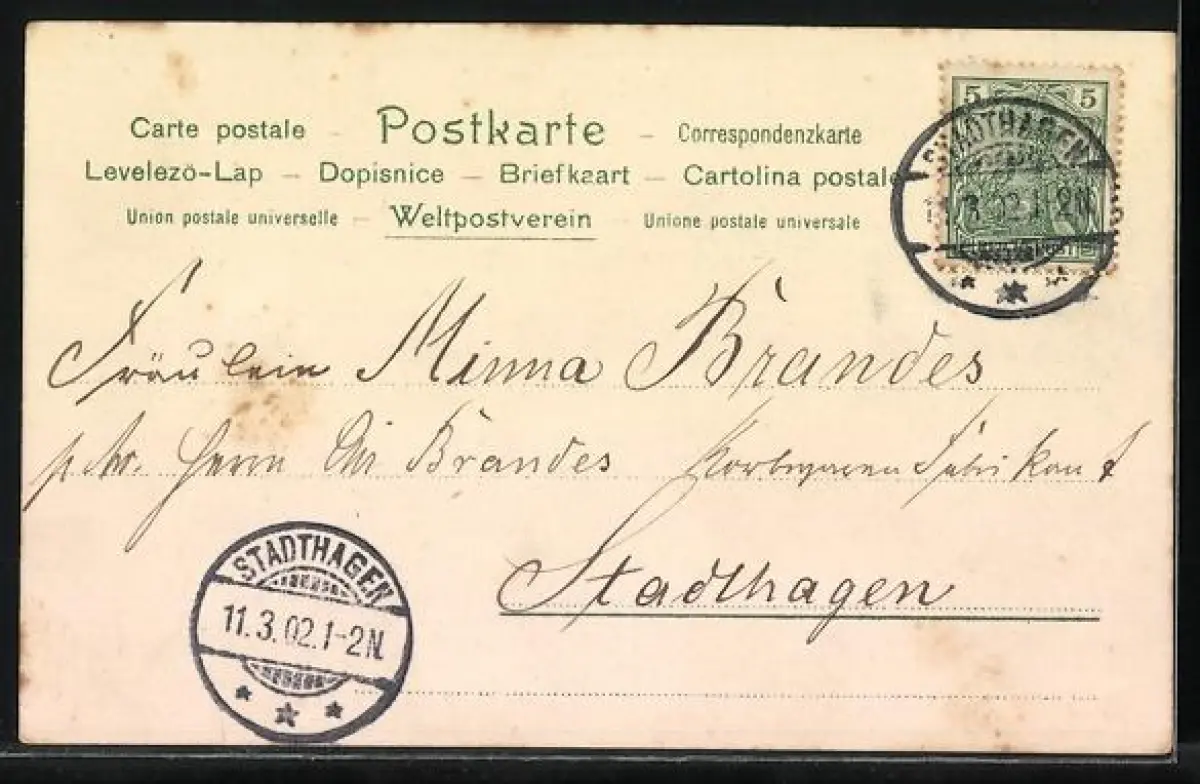 Carte postale – Postkarte – Correspondenzkarte
Levelezö-Lap – Dopisnice – Briefkaart – Cartolina postale
Union postale universelle – Weltpostverein – Unione postale universale
5 5
STADTHAGEN
3.02.1-2N
Fräulein Minna Brandes
Herrn Brandes Korbwaren Fabrikant
Stadthagen
STADTHAGEN
11.3.02.1-2N.